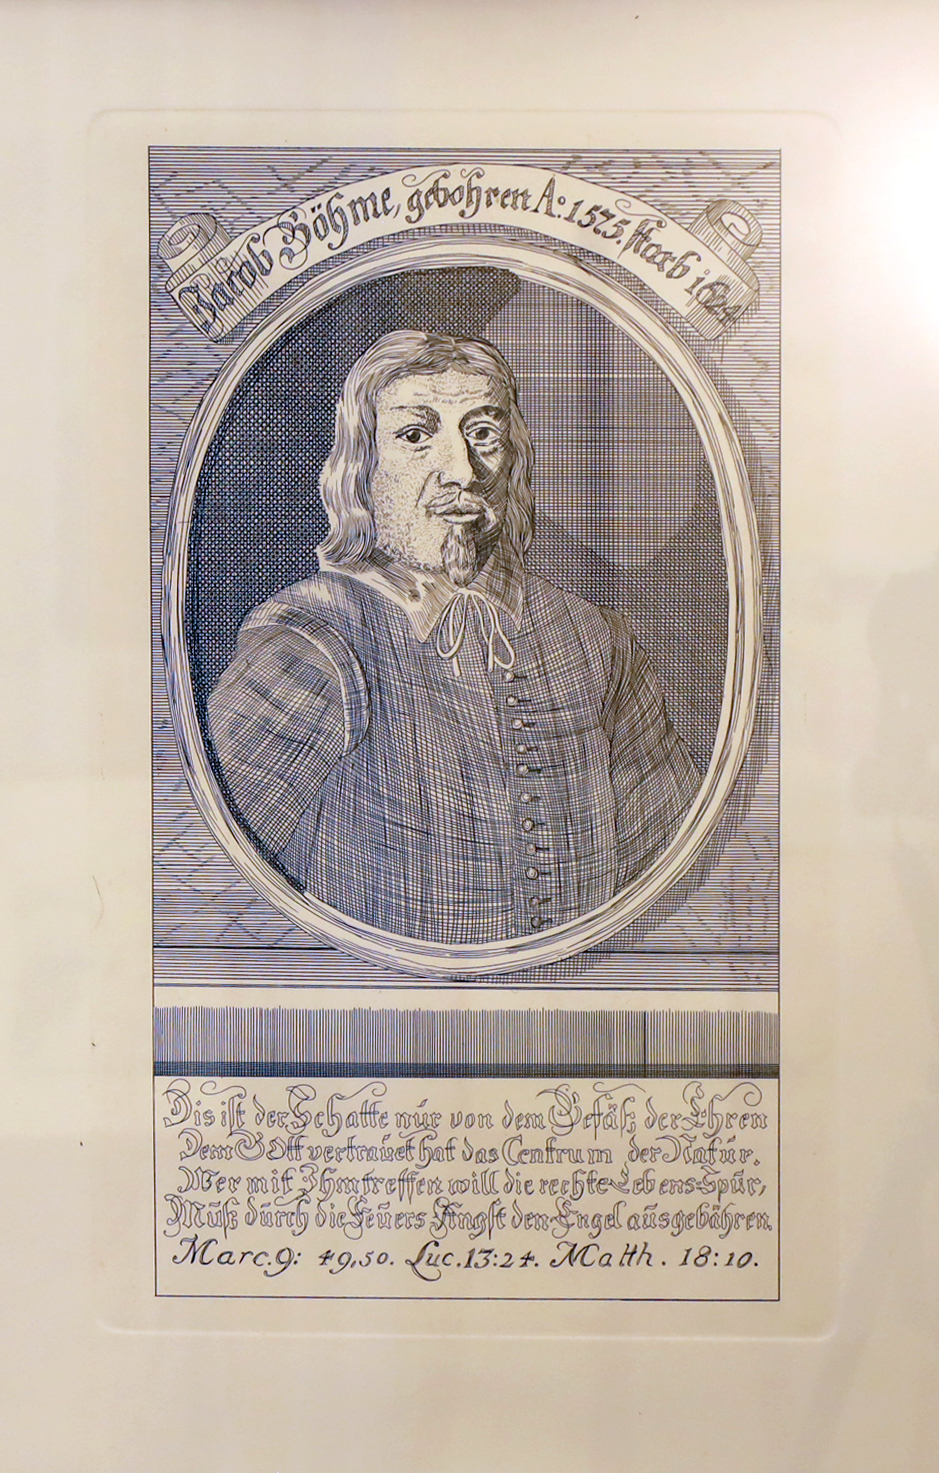 Jacob Böhme, gebohren A: 1575. starb 1624
Dis ist der Schatte nur von dem Gefäß der Ehren
Dem GOtt vertrauet hat das Centrum der Natur.
Wer mit Ihm treffen will die rechte Lebens-Spur,
Muß durch die Feuers Angst den Engel ausgebähren.
Marc. 9: 49,50. Luc. 13:24. Matth. 18:10.